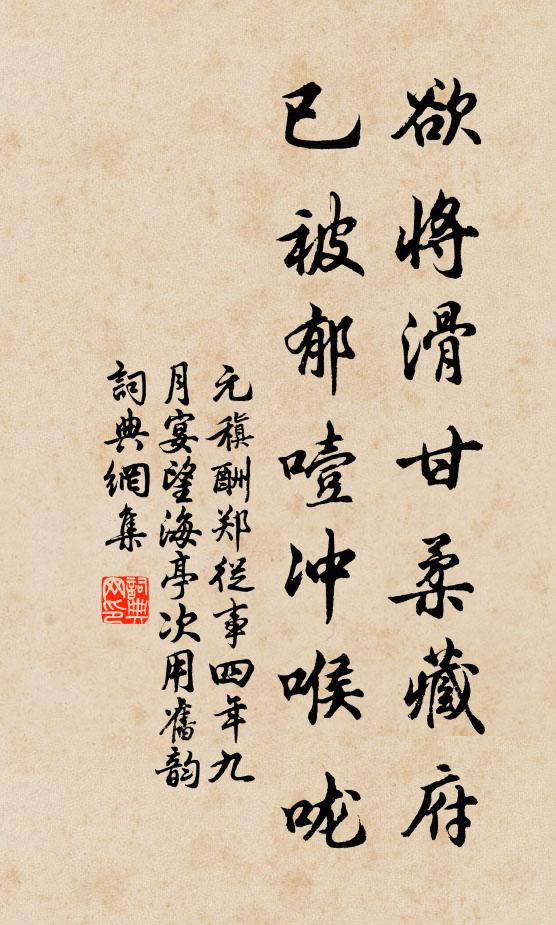 欲将滑甘柔藏府
已被郁噎冲喉咙
元稹酬郑从事四年九
月宴望海亭次用旧韵
詞典網集
詞典网印